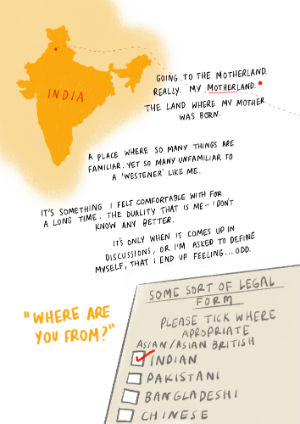 INDIA
GOING TO THE MOTHERLAND.
REALLY. MY MOTHERLAND.
THE LAND WHERE MY MOTHER
WAS BORN.
A PLACE WHERE SO MANY THINGS ARE
FAMILIAR. YET SO MANY UNFAMILIAR TO
A 'WESTENER' LIKE ME.
IT'S SOMETHING I FELT COMFORTABLE WITH FOR
A LONG TIME. THE DUALITY THAT IS ME - I DON'T
KNOW ANY BETTER.
IT'S ONLY WHEN IT COMES UP IN
DISCUSSIONS, OR I'M ASKED TO DEFINE
MYSELF, THAT I END UP FEELING... ODD.
"WHERE ARE
YOU FROM?"
SOME SORT OF LEGAL
FORM
PLEASE TICK WHERE
APROPRIATE
ASIAN/ASIAN BRITISH
INDIAN
PAKISTANI
BANGLADESHI
CHINESE